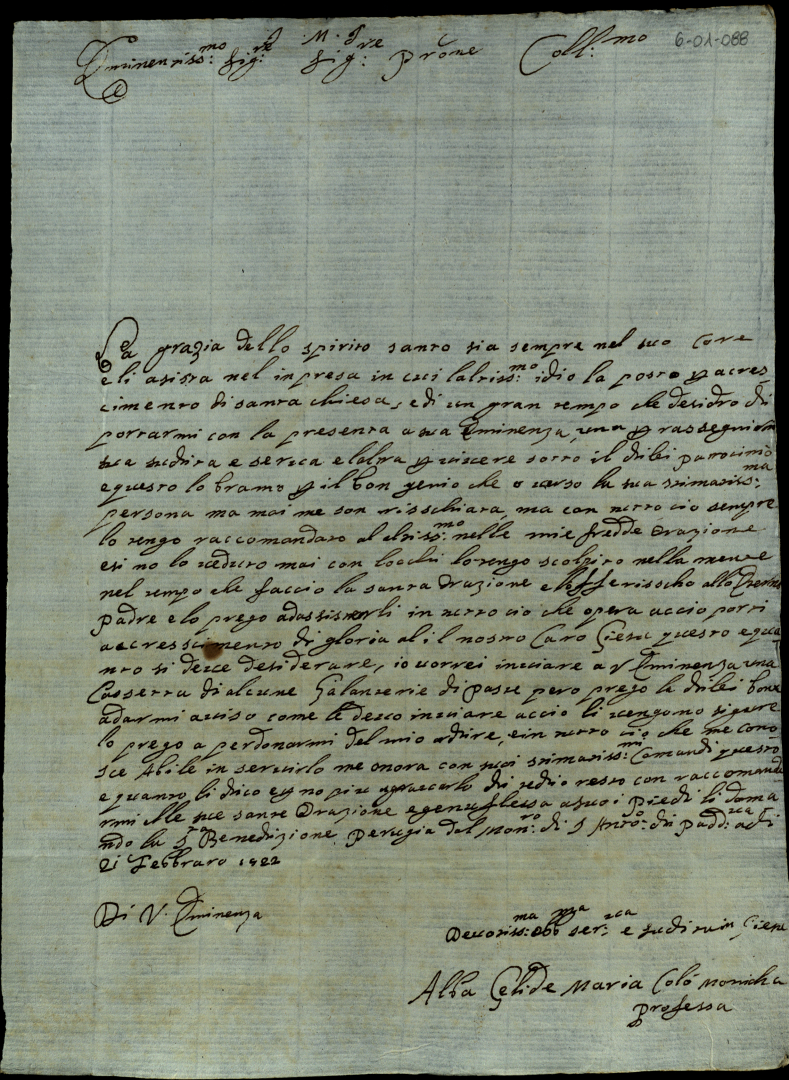 6-01-088
J. M. Gre
Eminentiss:mo Sig:re Sig: Prone Coll:mo
La grazia dello spirito santo sia sempre nel suo Core
e li asista nel inpresa in cui laltiss:mo idio la posto p acres
cimento di santa chiesa, e di un gran tempo che desidro di
portarmi con la presenta a sua Eminenza, una p rasseguiarmi
sua sudita e serva e laltra p vivere sotto il di lei patrocinio
e questo lo bramo p il bon genio che o verso la sua stimatiss:ma
persona ma mai me son risschiara, ma con tutto cio sempre
lo tengo raccomandato al altiss:mo nelle mie fredde Orazione
e si no lo veduto mai con locchi lo tengo scolpito nella mente
nel tempo che faccio la santa Orazione e lofferisscho allo Eterno
Padre e lo prego adassisterli in tutto cio che opera accio porti
accresscimento di gloria al il nostro Caro Giesu questo e qua
nto si deve desiderare, io vorrei inviare a V Eminenza una
Cassetta di alcune Galanterie di paste pero prego la di lei bontà
a darmi aviso come le devo inviare accio li vengono sigure
lo prego a perdonarmi del mio ardire, e in tutto cio che me cono
sce Abile in servirlo me onora con suoi stimatiss:mi Comandi questo
e quanto li dico e p no piu ... di tedio resto con raccomanda
rmi alle sue sante Orazione e genuflessa a suoi Piedi li doma
ndo la S:ta Benedizione Perugia dal Mon:ro di S Anto:o di Padd:a adi
21 Febbraro 1822
Di V. Eminenza
Devotiss:ma Obb:ma ser:va e sudita in Giesu
Alba Gelide Maria Colò Monicha
Professa